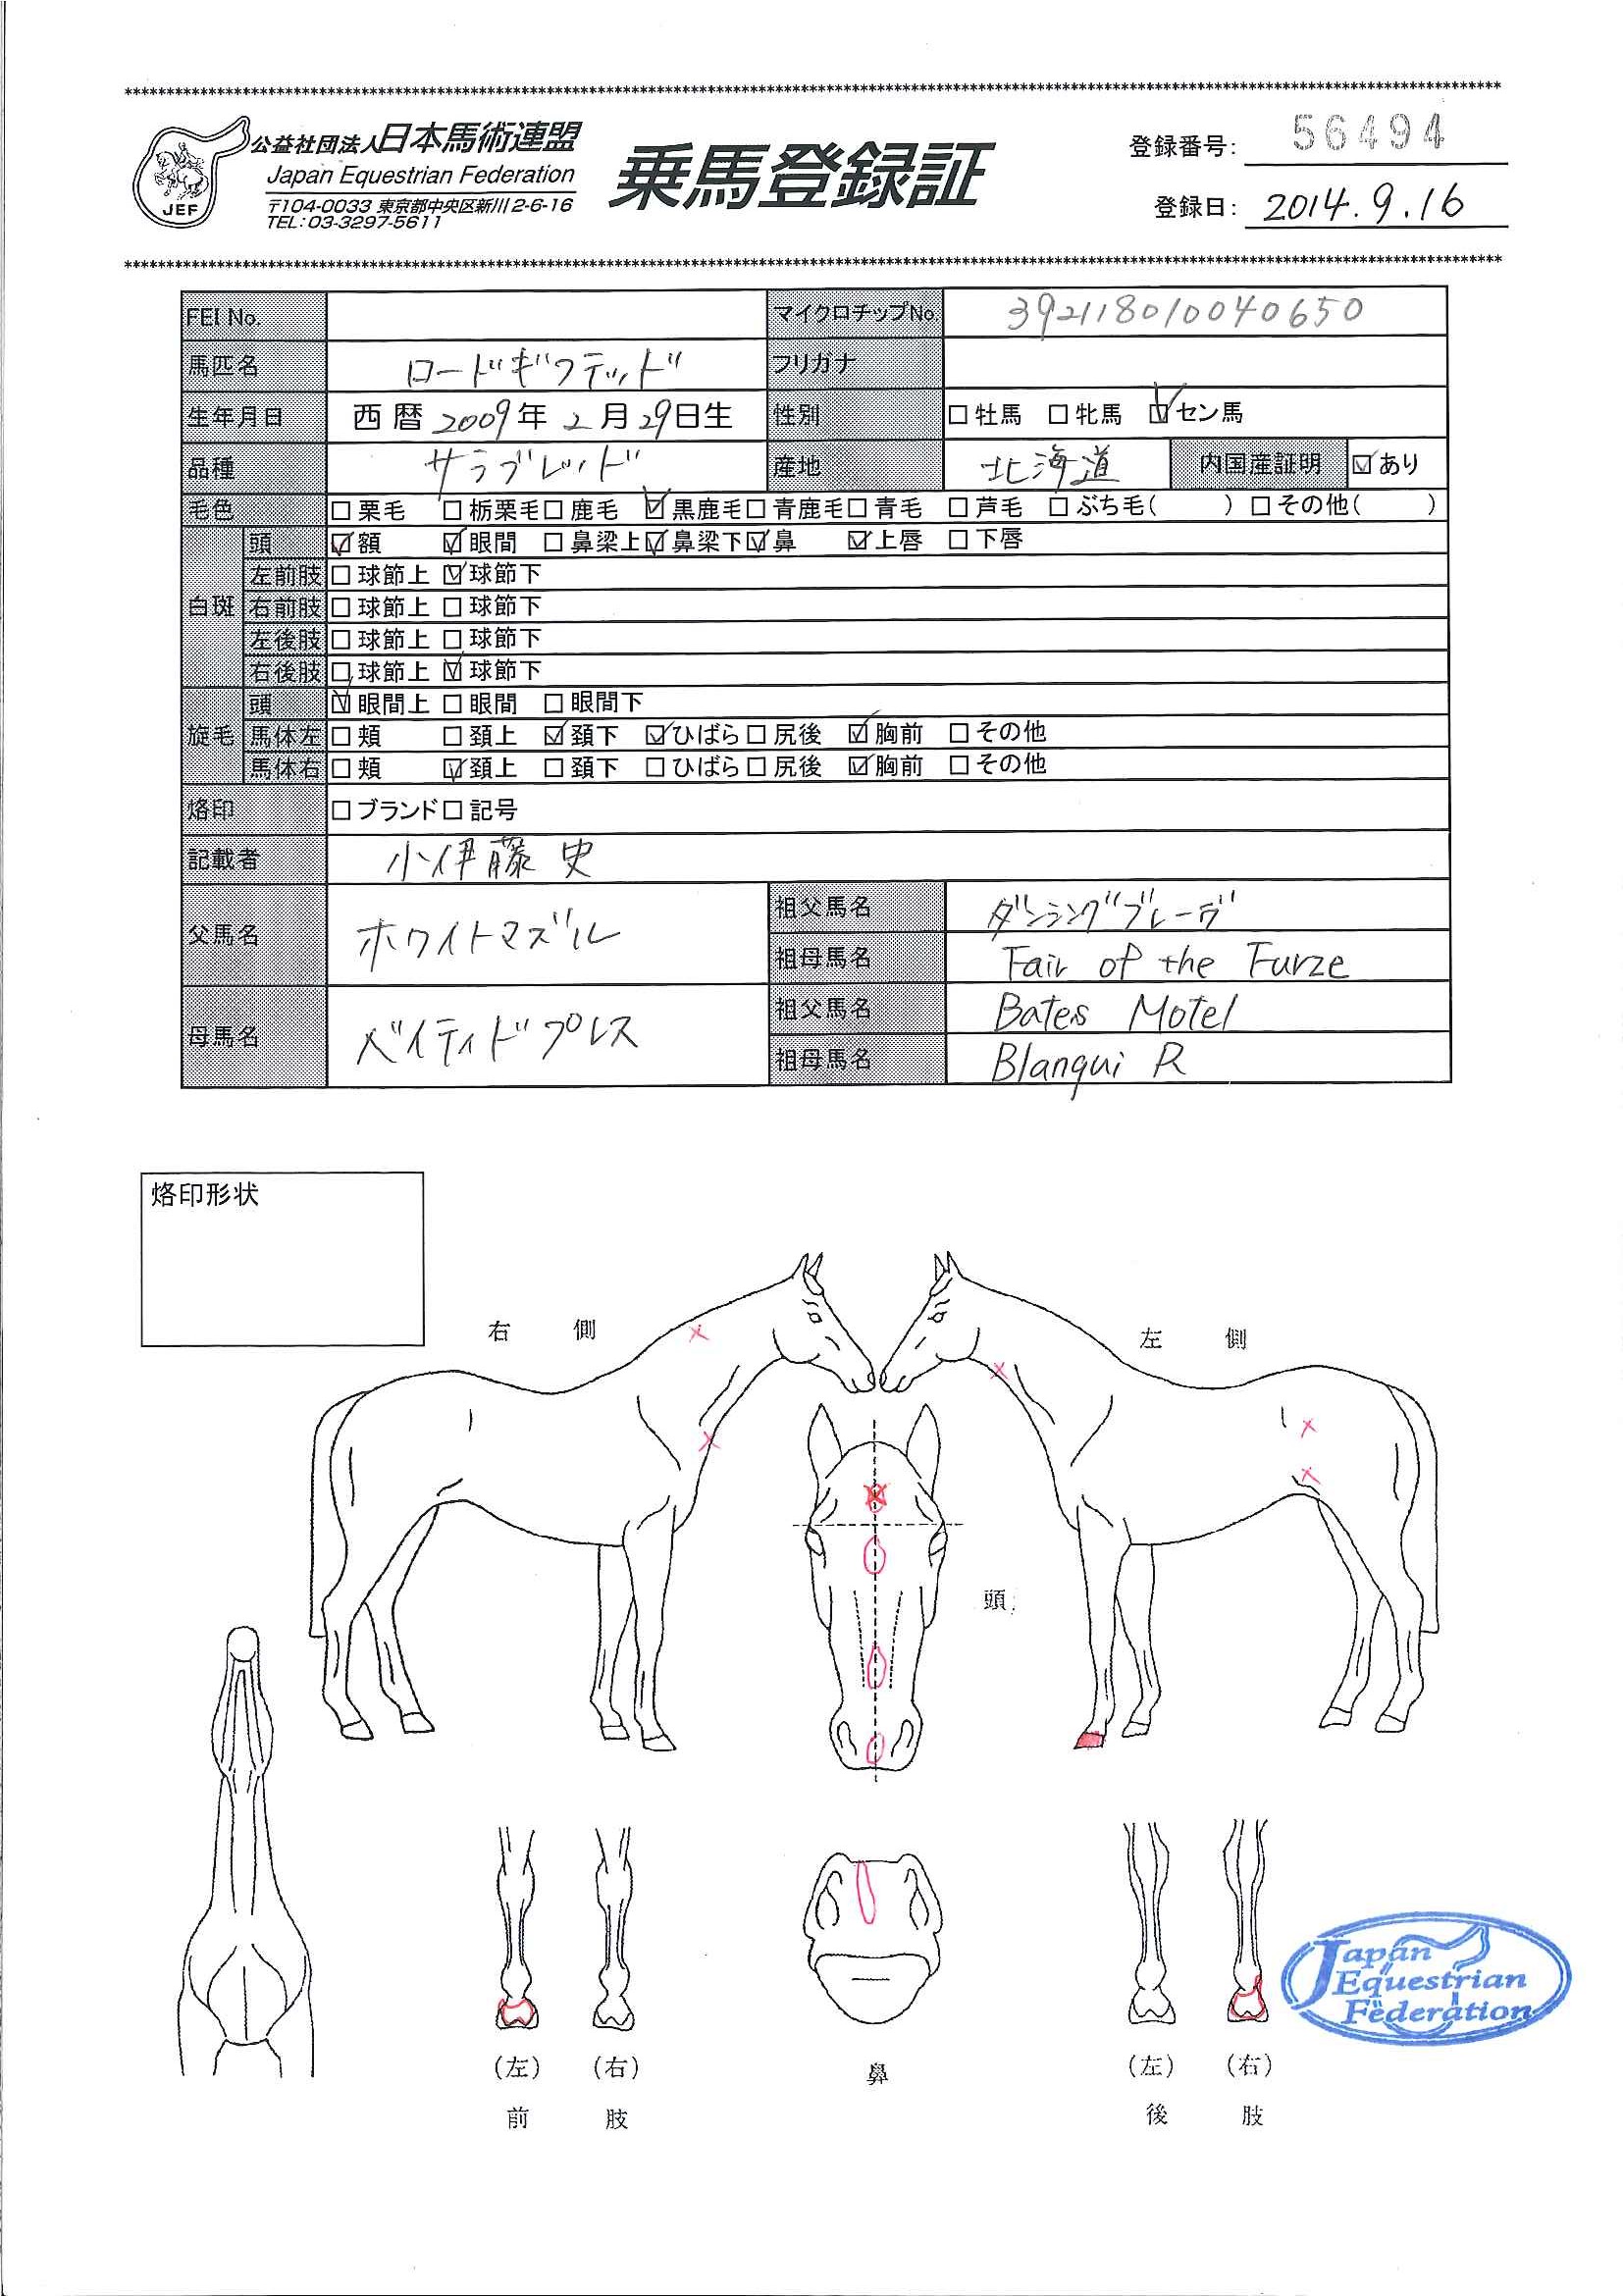 公益社団法人日本馬術連盟
Japan Equestrian Federation
〒104-0033 東京都中央区新川2-6-16
TEL:03-3297-5611
JEF
乗馬登録証
登録番号: 56494
登録日: 2014.9.16
FEI No. マイクロチップNo. 392118010040650
馬匹名 ロードギフテッド フリガナ
生年月日 西暦2009年2月29日生 性別 □牡馬 □牝馬 ☑セン馬
品種 サラブレッド 産地 北海道 内国産証明 ☑あり
毛色 □栗毛 □栃栗毛 □鹿毛 ☑黒鹿毛 □青鹿毛 □青毛 □芦毛 □ぶち毛( ) □その他( )
白斑 頭 ☑額 ☑眼間 □鼻梁上 ☑鼻梁下 ☑鼻 ☑上唇 □下唇
左前肢 □球節上 ☑球節下
右前肢 □球節上 □球節下
左後肢 □球節上 □球節下
右後肢 □球節上 ☑球節下
旋毛 頭 ☑眼間上 □眼間 □眼間下
馬体左 □頬 □頚上 ☑頚下 ☑ひばら □尻後 ☑胸前 □その他
馬体右 □頬 ☑頚上 □頚下 □ひばら □尻後 ☑胸前 □その他
烙印 □ブランド □記号
記載者 小伊藤 史
父馬名 ホワイトマズル 祖父馬名 ダンシングブレーヴ
祖母馬名 Fair of the Furze
母馬名 ベイティドブレス 祖父馬名 Bates Motel
祖母馬名 Blanqui R
烙印形状
右側
左側
頭
鼻
(左) (右)
前肢
(左) (右)
後肢
Japan
Equestrian
Federation